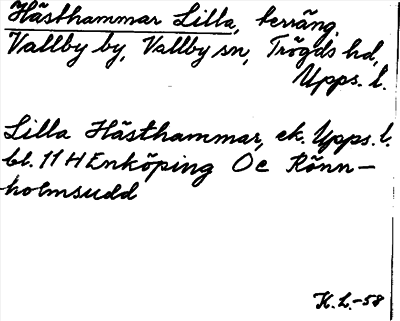 Hästhammar Lilla, terräng,
Vallby by, Vallby sn, Trögds hd,
Upps. l.
Lilla Hästhammar, ek. Upps. l.
bl. 11 H Enköping O c Rönn-
holmsudd
K. L. -58